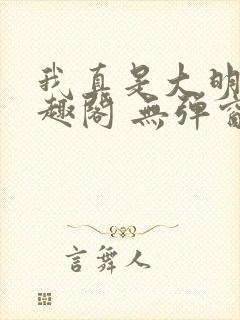 我真是大明
趣閣 無彈窗
言舞人